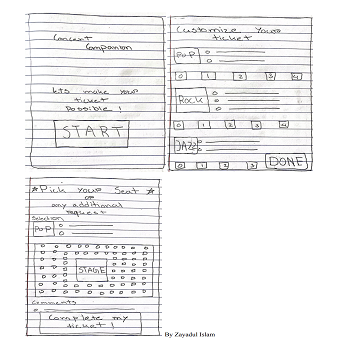 Concert
Companion
lets make your
ticket
possible!
START
Customize your
ticket
POP
0 1 2 3 4
ROCK
0 1 2 3 4
JAZZ
0 1 2 3
DONE
★Pick your Seat★
or
any additional
request
Selection
POP
STAGE
Comments
Complete my
ticket!
By Zayadul Islam